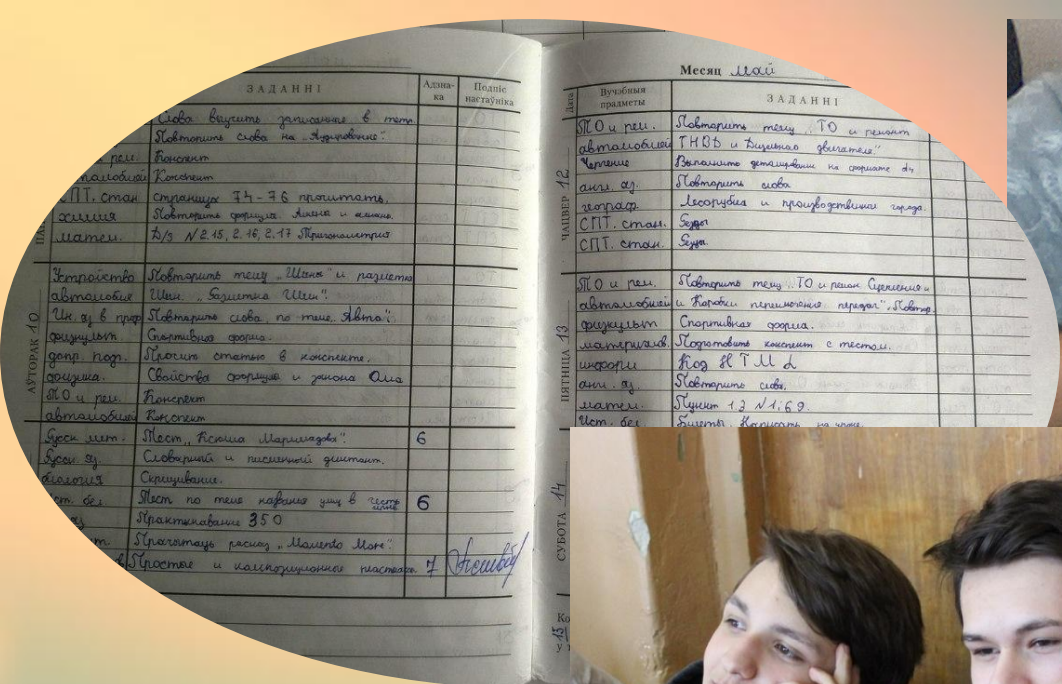 ЗАДАННІ Адзна-ка Подпіс настаўніка
Слова выучить записанное в тетр.
Повторить слова на „Аудирование".
рем. Конспект
томобилей Конспект
СПТ. стан страницы 74-76 прочитать.
химия Повторить формула.
матем. Д/з №2.15, 2.16, 2.17 Тригонометрия
АЎТОРАК 10
Устройство Повторить тему „Шины" и разметка
автомобие Шин. „Разметка Шин".
Ин. яз в проф Повторить слова, по теме „Авто".
физкульт. Спортивная форма.
допр. подг. Прочит статью в конспекте.
физика. Свойства формула и закона Ома
ТО и рем. Конспект
автомобилей Конспект
Русск. лит. Тест „Ксюша Мармеладова". 6
Русск. яз. Словарный и письменный диктант.
биология Скрещивание.
ист. бел Тест по теме названия улиц в честь 6
яз Практыкаванне 350
Прачытаць расказ „Momento Море".
Простые и композиционное 7
Месяц май
Дата Вучэбныя прадметы ЗАДАННІ
ЧАЦВЕР 12
ТО и рем. Повторить тему „ТО и ремонт
автомобилей ТНВД и Дизельного двигателя"
Черчение Выполнить деталирование на формате А4
англ. яз. Повторить слова
географ. Лесорубка и производственной города.
СПТ. стан.
СПТ. стан.
ПЯТНІЦА 13
ТО и рем. Повторить тему „ТО и ремон Сцепления
автомобилей и Коробки переключения передач". Повтор.
физкульт Спортивная форма.
материалов. Подготовить конспект с тестом.
информ Код HTML
англ. яз Повторить слова.
матем. Пункт 13 №1,69.
Ист. бел Билеты. Написать на
СУБОТА 14